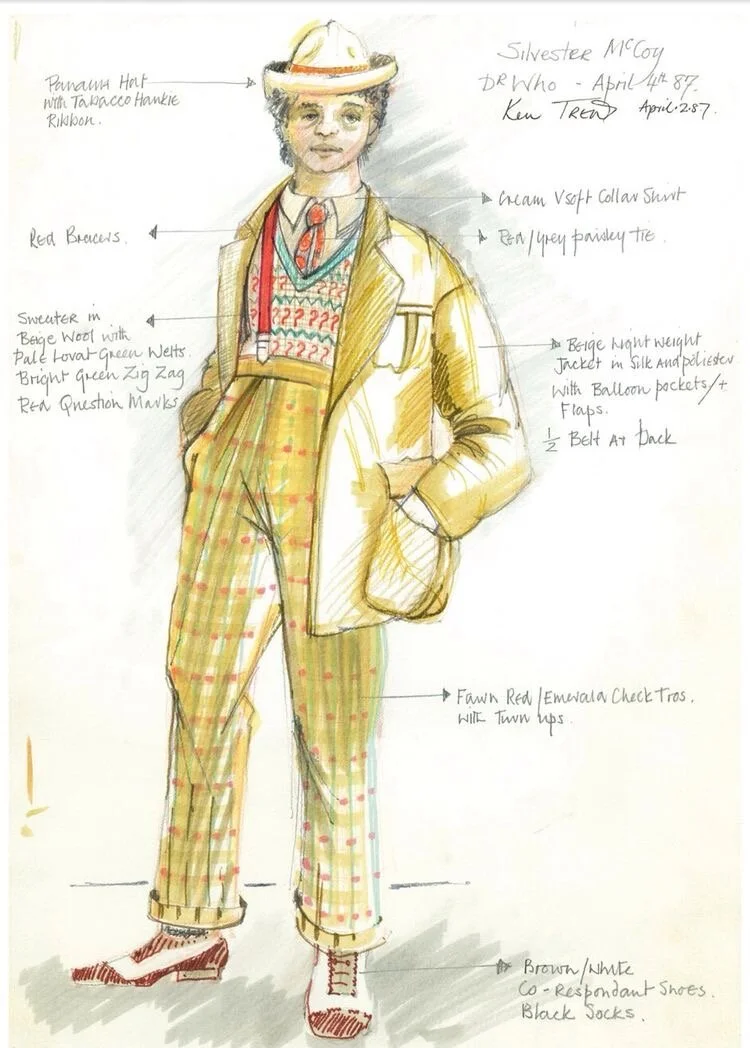 Silvester McCoy
DR Who - April 4th 87.
Ken Trew April.2.87.
Panama Hat
with Tabacco Hankie
Ribbon.
Cream V soft Collar Shirt
Red Bracers.
Red/grey paisley tie.
Sweater in
Beige Wool with
Pale Lovat Green Welts.
Bright Green Zig Zag
Red Question Marks
Beige Light Weight
Jacket in Silk And poliester
With Balloon pockets/+
Flaps.
1/2 Belt At back
Fawn Red/Emerald Check Tros.
with Turn ups.
Brown/White
Co-Respondant Shoes.
Black Socks.